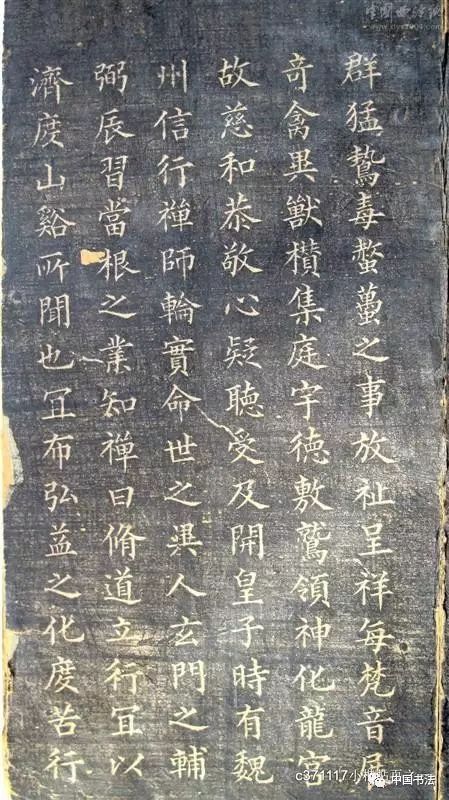 群猛鷙毒螫蠆之事放祉呈祥每梵音展
奇禽異獸攅集庭宇徳敷鷲領神化龍宮
故慈和恭敬心疑聽受及開皇子時有魏
州信行禅師輪實命世之異人玄門之輔
弼辰習當根之業知禅曰脩道立行冝以
濟度山谿所聞也冝布弘益之化度苦行
中国西泠网
www.xlys1904.com
c371117小楷
中国书法